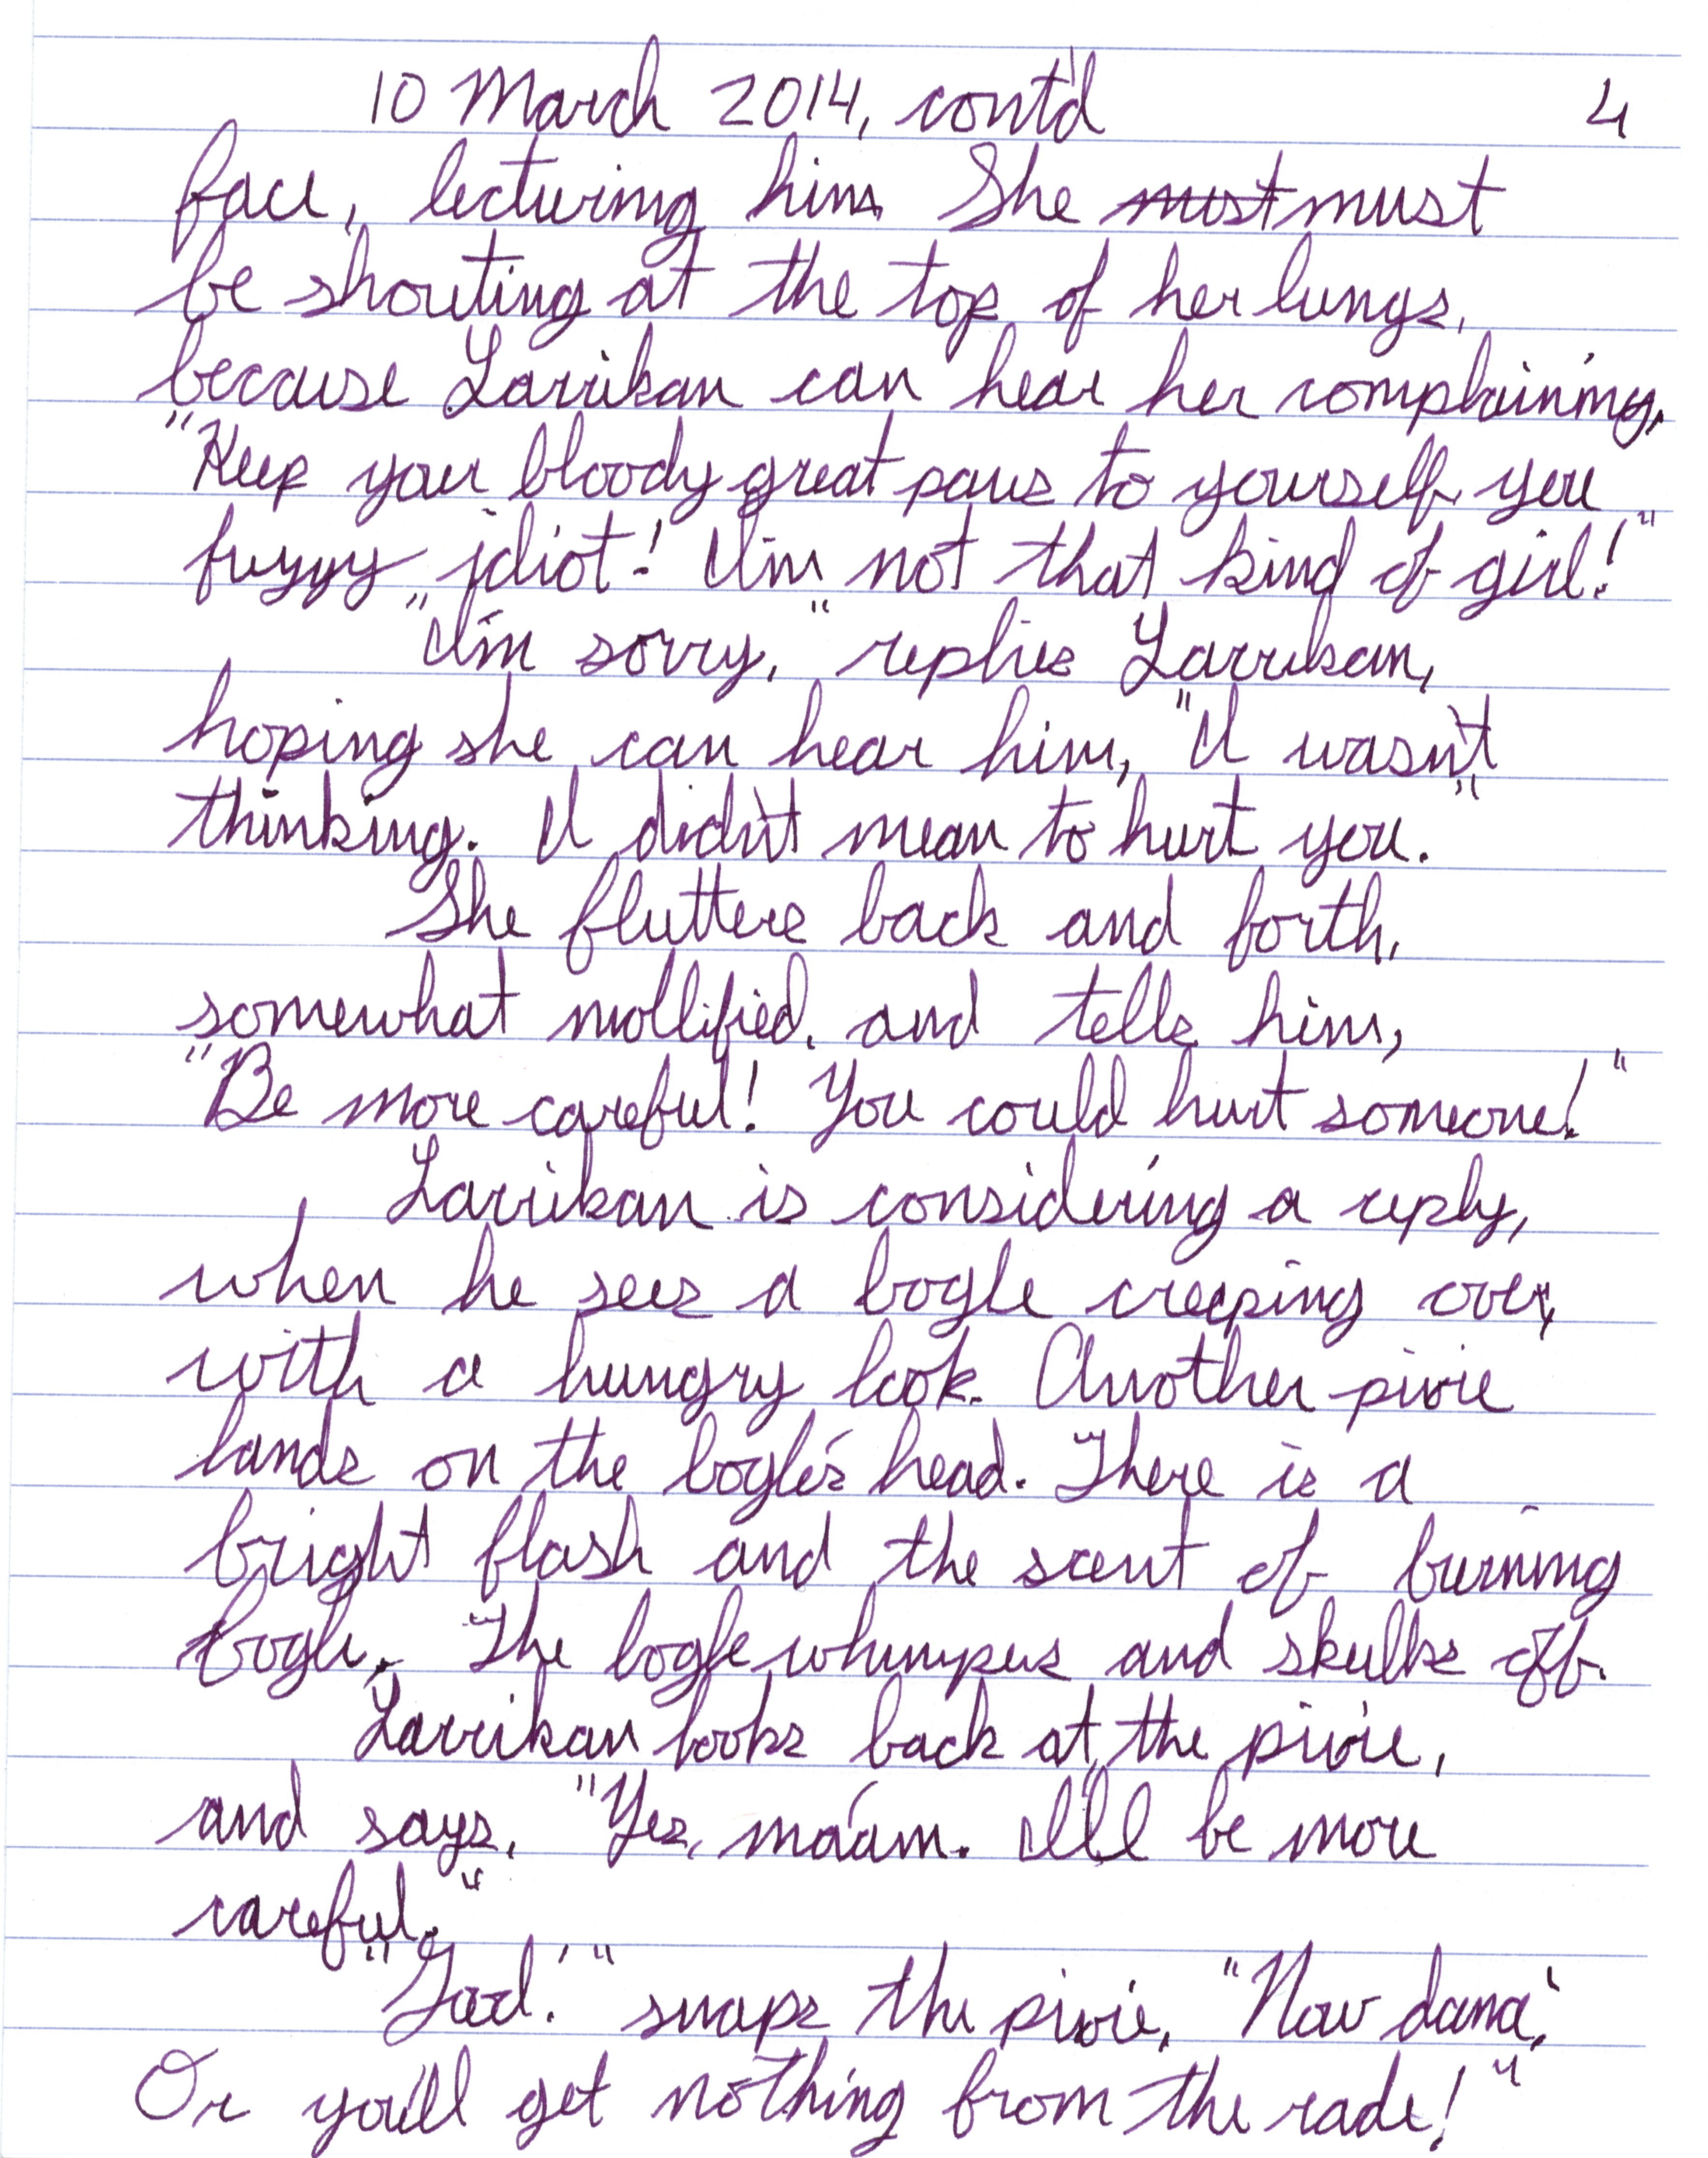 10 March 2014, cont'd 4
face, lecturing him. She must must
be shouting at the top of her lungs,
because Larrikan can hear her complaining,
"Keep your bloody great paws to yourself, you
fuzzy idiot! I'm not that kind of girl!"
"I'm sorry," replies Larrikan,
hoping she can hear him, "I wasn't
thinking. I didn't mean to hurt you."
She flutters back and forth,
somewhat mollified, and tells him,
"Be more careful! You could hurt someone!"
Larrikan is considering a reply,
when he sees a bogle creeping over,
with a hungry look. Another pixie
lands on the bogle's head. There is a
bright flash and the scent of burning
bogle. The bogle whimpers and skulks off.
Larrikan looks back at the pixie,
and says, "Yes, ma'am. I'll be more
careful."
"Good!" snaps the pixie, "Now dance!
Or you'll get nothing from the rade!"